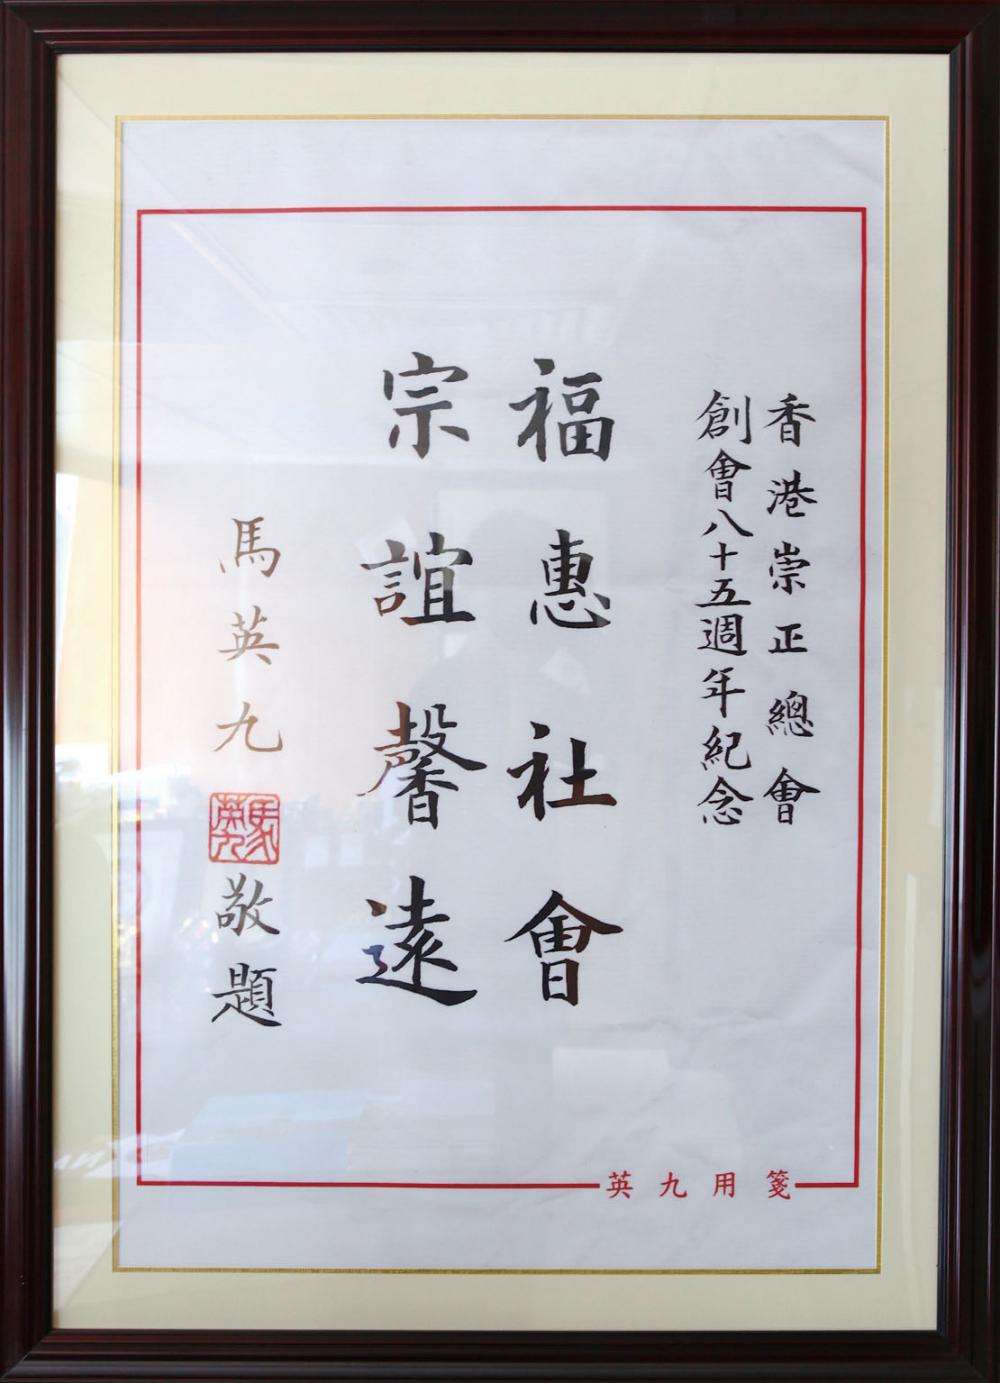 香港崇正總會
創會八十五週年紀念
福惠社會
宗誼馨遠
馬英九
馬英九
敬題
英九用箋